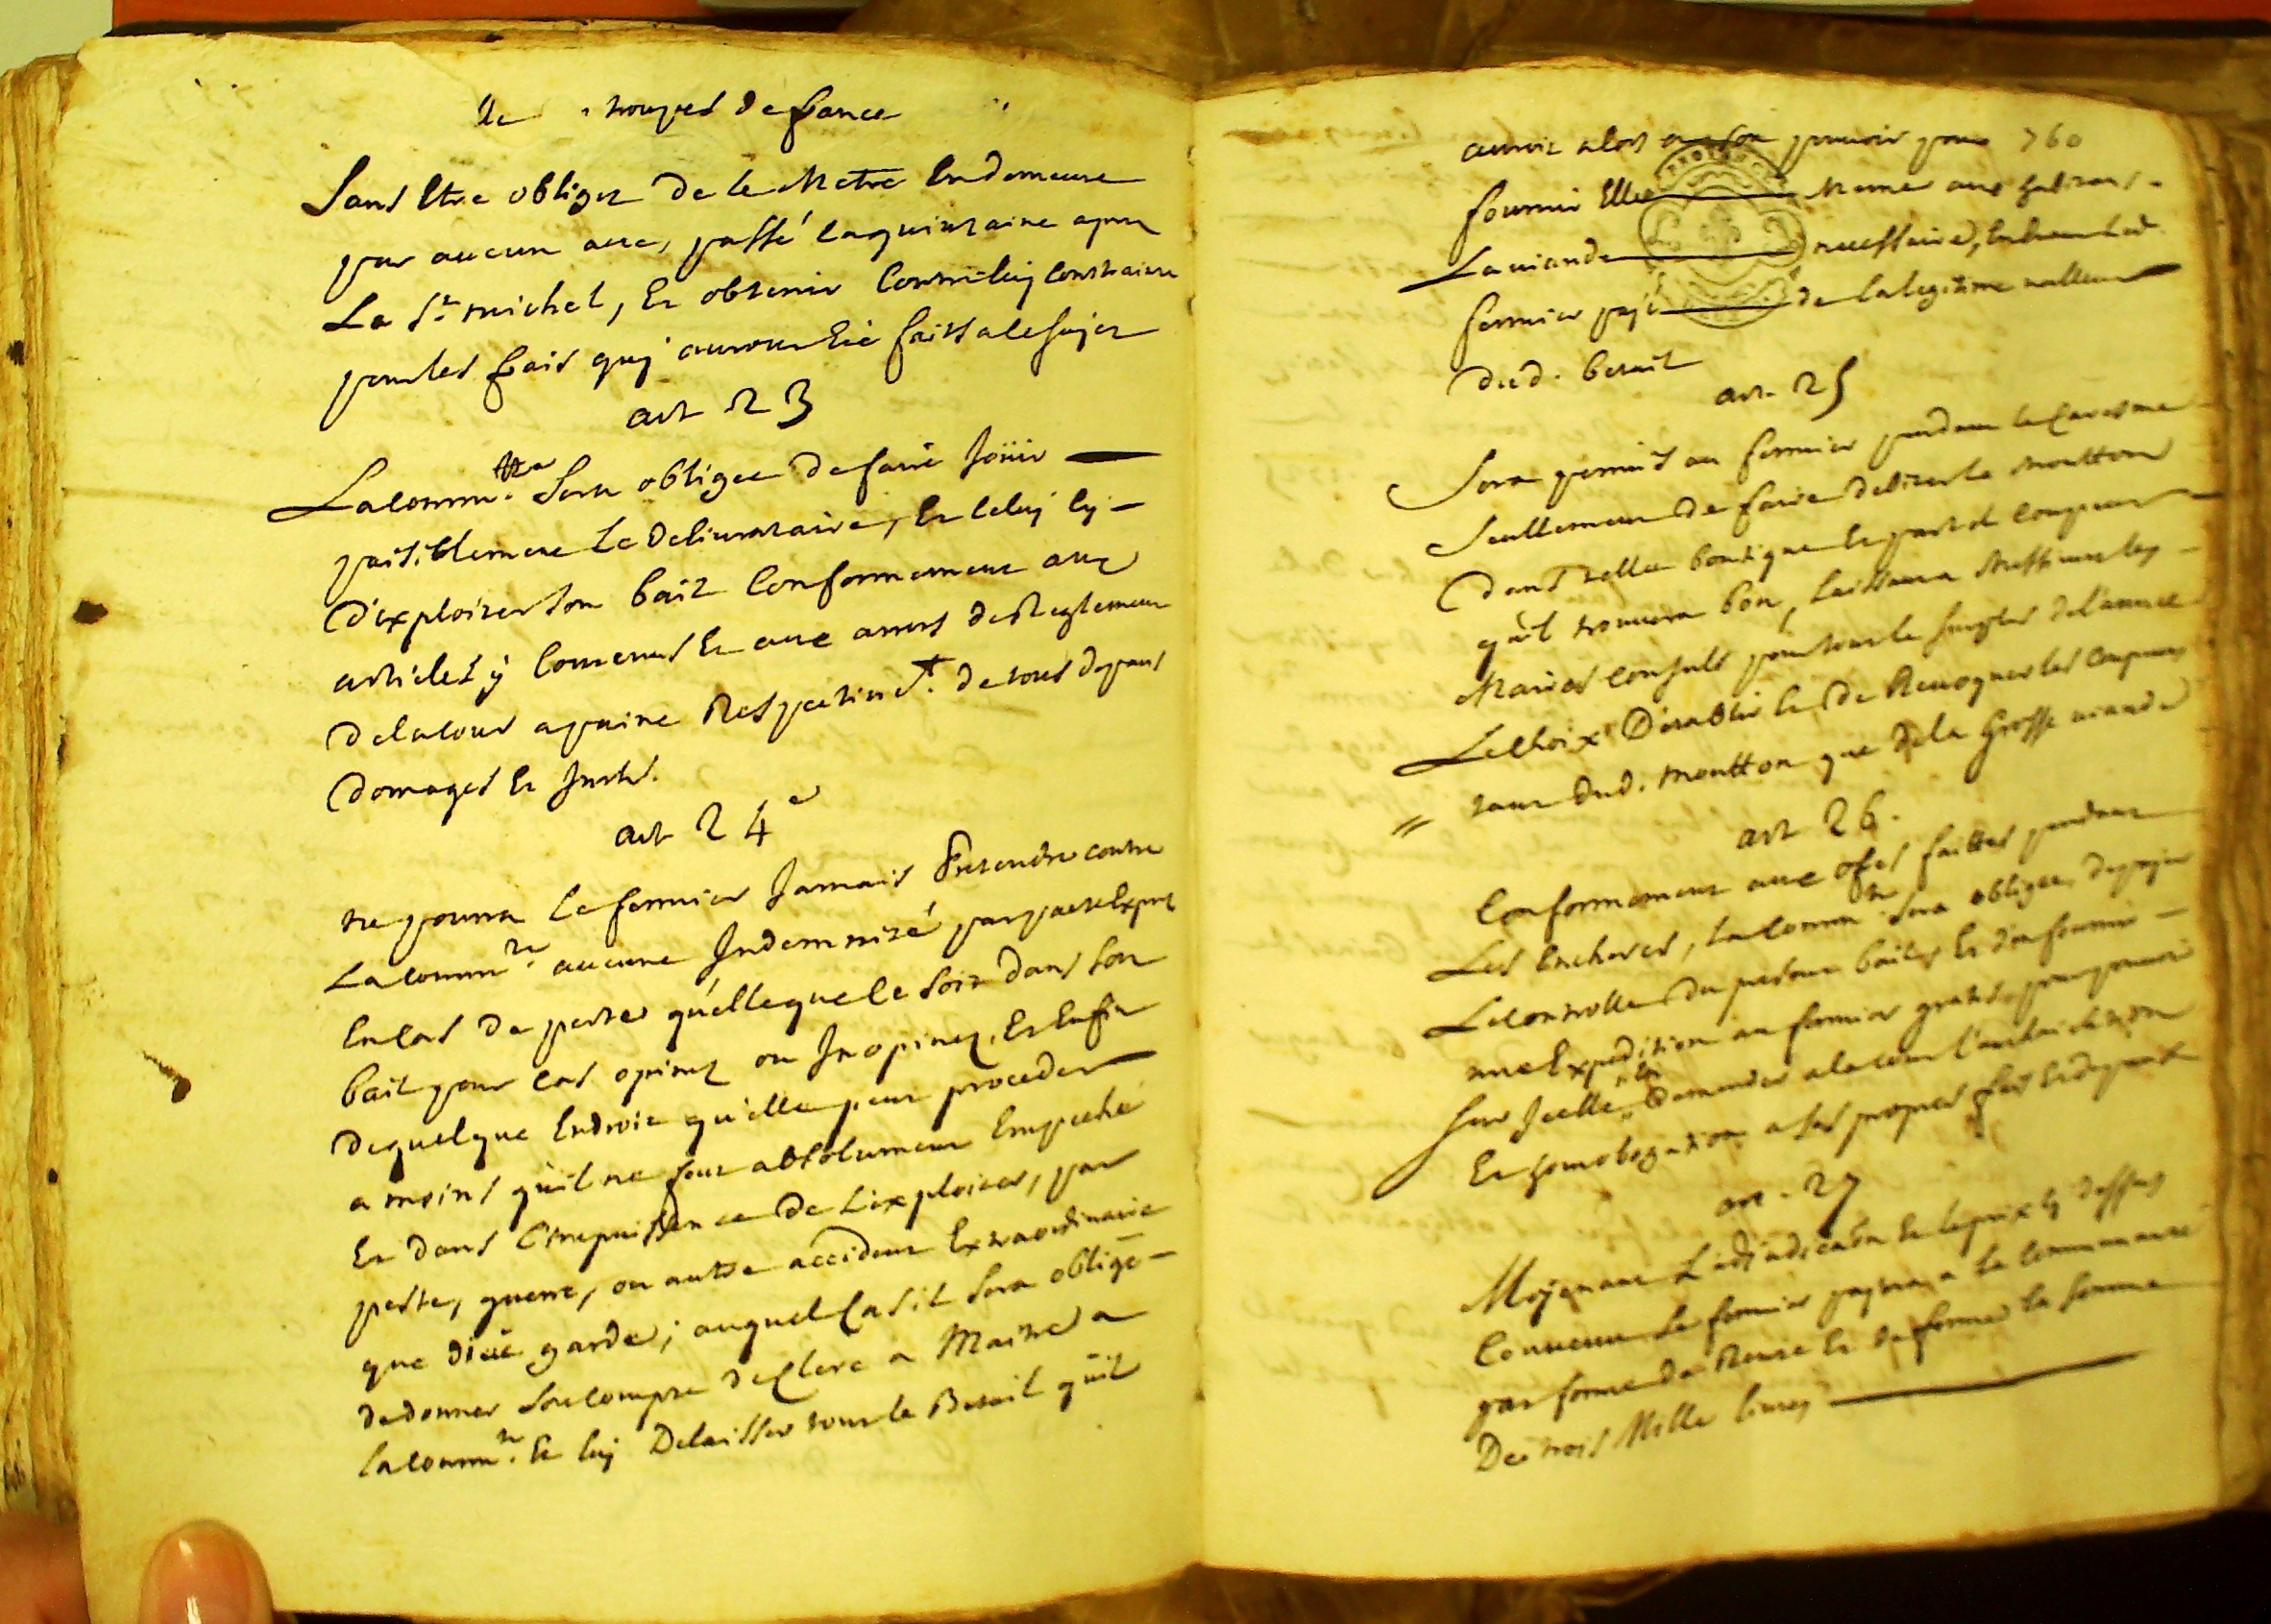 troupes de france
Sans Etre obliges de le Metre Endemeure
par aucun acte, passé laquinzaine apres
La St michel, Et obtenir Contre luy Contrainte
pour les frais quy auront Eté faits ale sujet
art 23
La comm.té Sera obligée de faire Joüir
paisiblement Le Deliurataire, Et celuy cy
d'exploiter son bail Conformement aux
articles y Contenus Et aux arrets de Reglement
dela cour a paine Respectiuet. de tous depans
domages Et Jnts.
art 24e
ne pourra le fermier Jamais Pretendre contre
La comm.te aucune Jndemnité par pacte Expres
En Cas de pertes qu'elle que ce soit dans son
bail pour cas opinez ou Jnopinez, Et Enfin
de quelque Endroit qu'elle peut proceder
a moins quil ne feut absolument Empeché
Et dans L'impuissence de L'exploiter, par
peste, guerre, ou autre accident Extraordinaire
que dieu garde; auquel Cas il sera obligé
de donner son compte de Clerc a Maitre a
la comm.te Et luy Delaisser tout le Betail quil
auroit alors en son pouuoir pour 760
fournir Elle Meme aux habitans
La uiande necessaire, led.
fermier payé de la legitime ualleur
dud. betail
art. 25
Sera permis au fermier pendant le Caresme
Seullement de faire debiter le moutton
Dans telle boutique Et par tel Coupeur
quil trouuera bon, laissant a Messieurs les
Maires Consuls pour tout le surplus de l'année
Le Choix D'etablir Et de Reuoquer les Coupeurs
tant dud. moutton que de la Grosse uiande
art 26.
Conformement aux ofres faittes pendant
Les Encheres, la comm.te sera obligée, de payer
Le controlle du present bail, Et d'en fournir
une Expedition au fermier gratis, pour pouuoir
sur Jcelle Demander a la cour l'authorisation
Et homologation a ses propres frais Et depans
art. 27
Moyenant L'adjudicaon Et le prix cy dessus
Conuenu Le fermier payera a la communauté
par forme de Rente Et de ferme la somme
De trois Mille liures